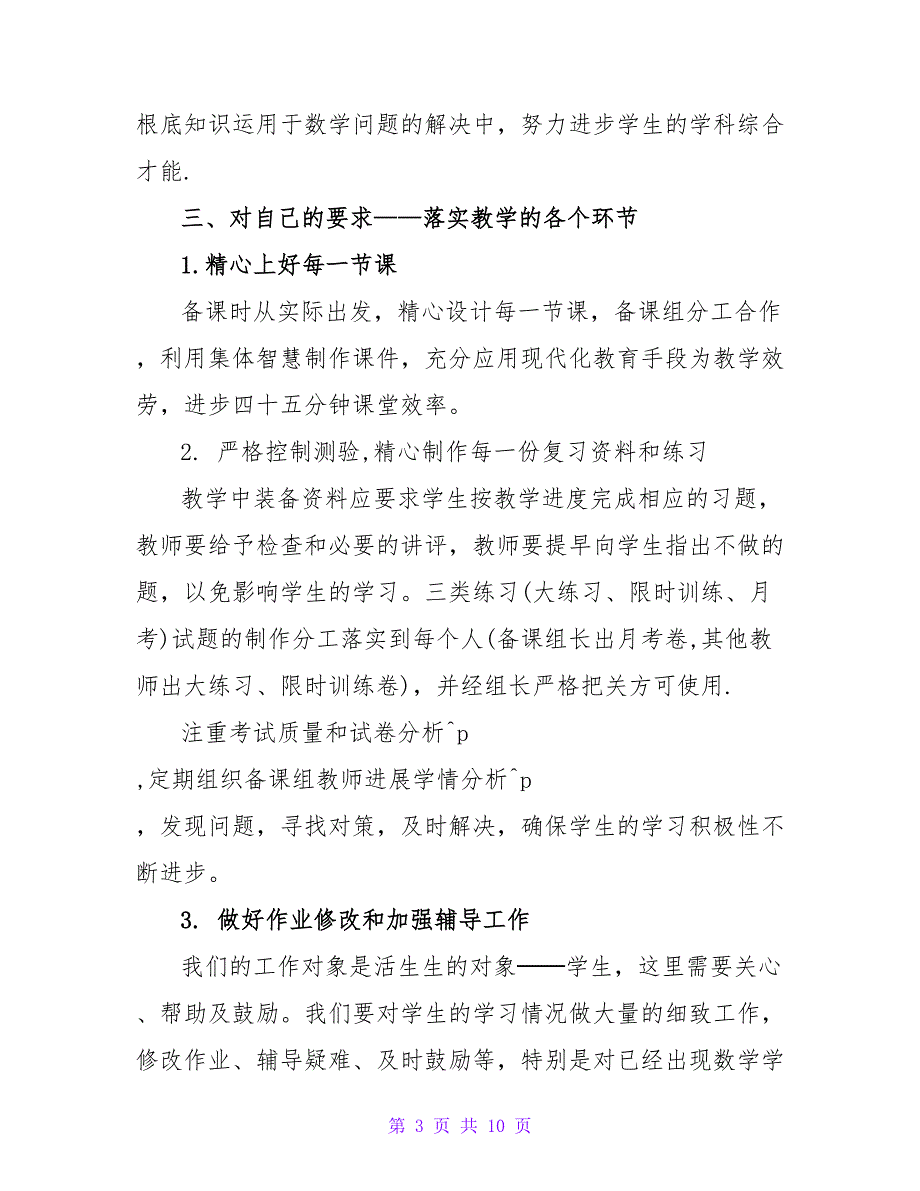 根底知识运用于数学问题的解决中，努力进步学生的学科综合
才能.
三、对自己的要求——落实教学的各个环节
1.精心上好每一节课
备课时从实际出发，精心设计每一节课，备课组分工合作
，利用集体智慧制作课件，充分应用现代化教育手段为教学效
劳，进步四十五分钟课堂效率。
2. 严格控制测验,精心制作每一份复习资料和练习
教学中装备资料应要求学生按教学进度完成相应的习题，
教师要给予检查和必要的讲评，教师要提早向学生指出不做的
题，以免影响学生的学习。三类练习(大练习、限时训练、月
考)试题的制作分工落实到每个人(备课组长出月考卷,其他教
师出大练习、限时训练卷)，并经组长严格把关方可使用.
注重考试质量和试卷分析^p
,定期组织备课组教师进展学情分析^p
，发现问题，寻找对策，及时解决，确保学生的学习积极性不
断进步。
3. 做好作业修改和加强辅导工作
我们的工作对象是活生生的对象——学生，这里需要关心
、帮助及鼓励。我们要对学生的学习情况做大量的细致工作，
修改作业、辅导疑难、及时鼓励等，特别是对已经出现数学学
第 3 页 共 10 页